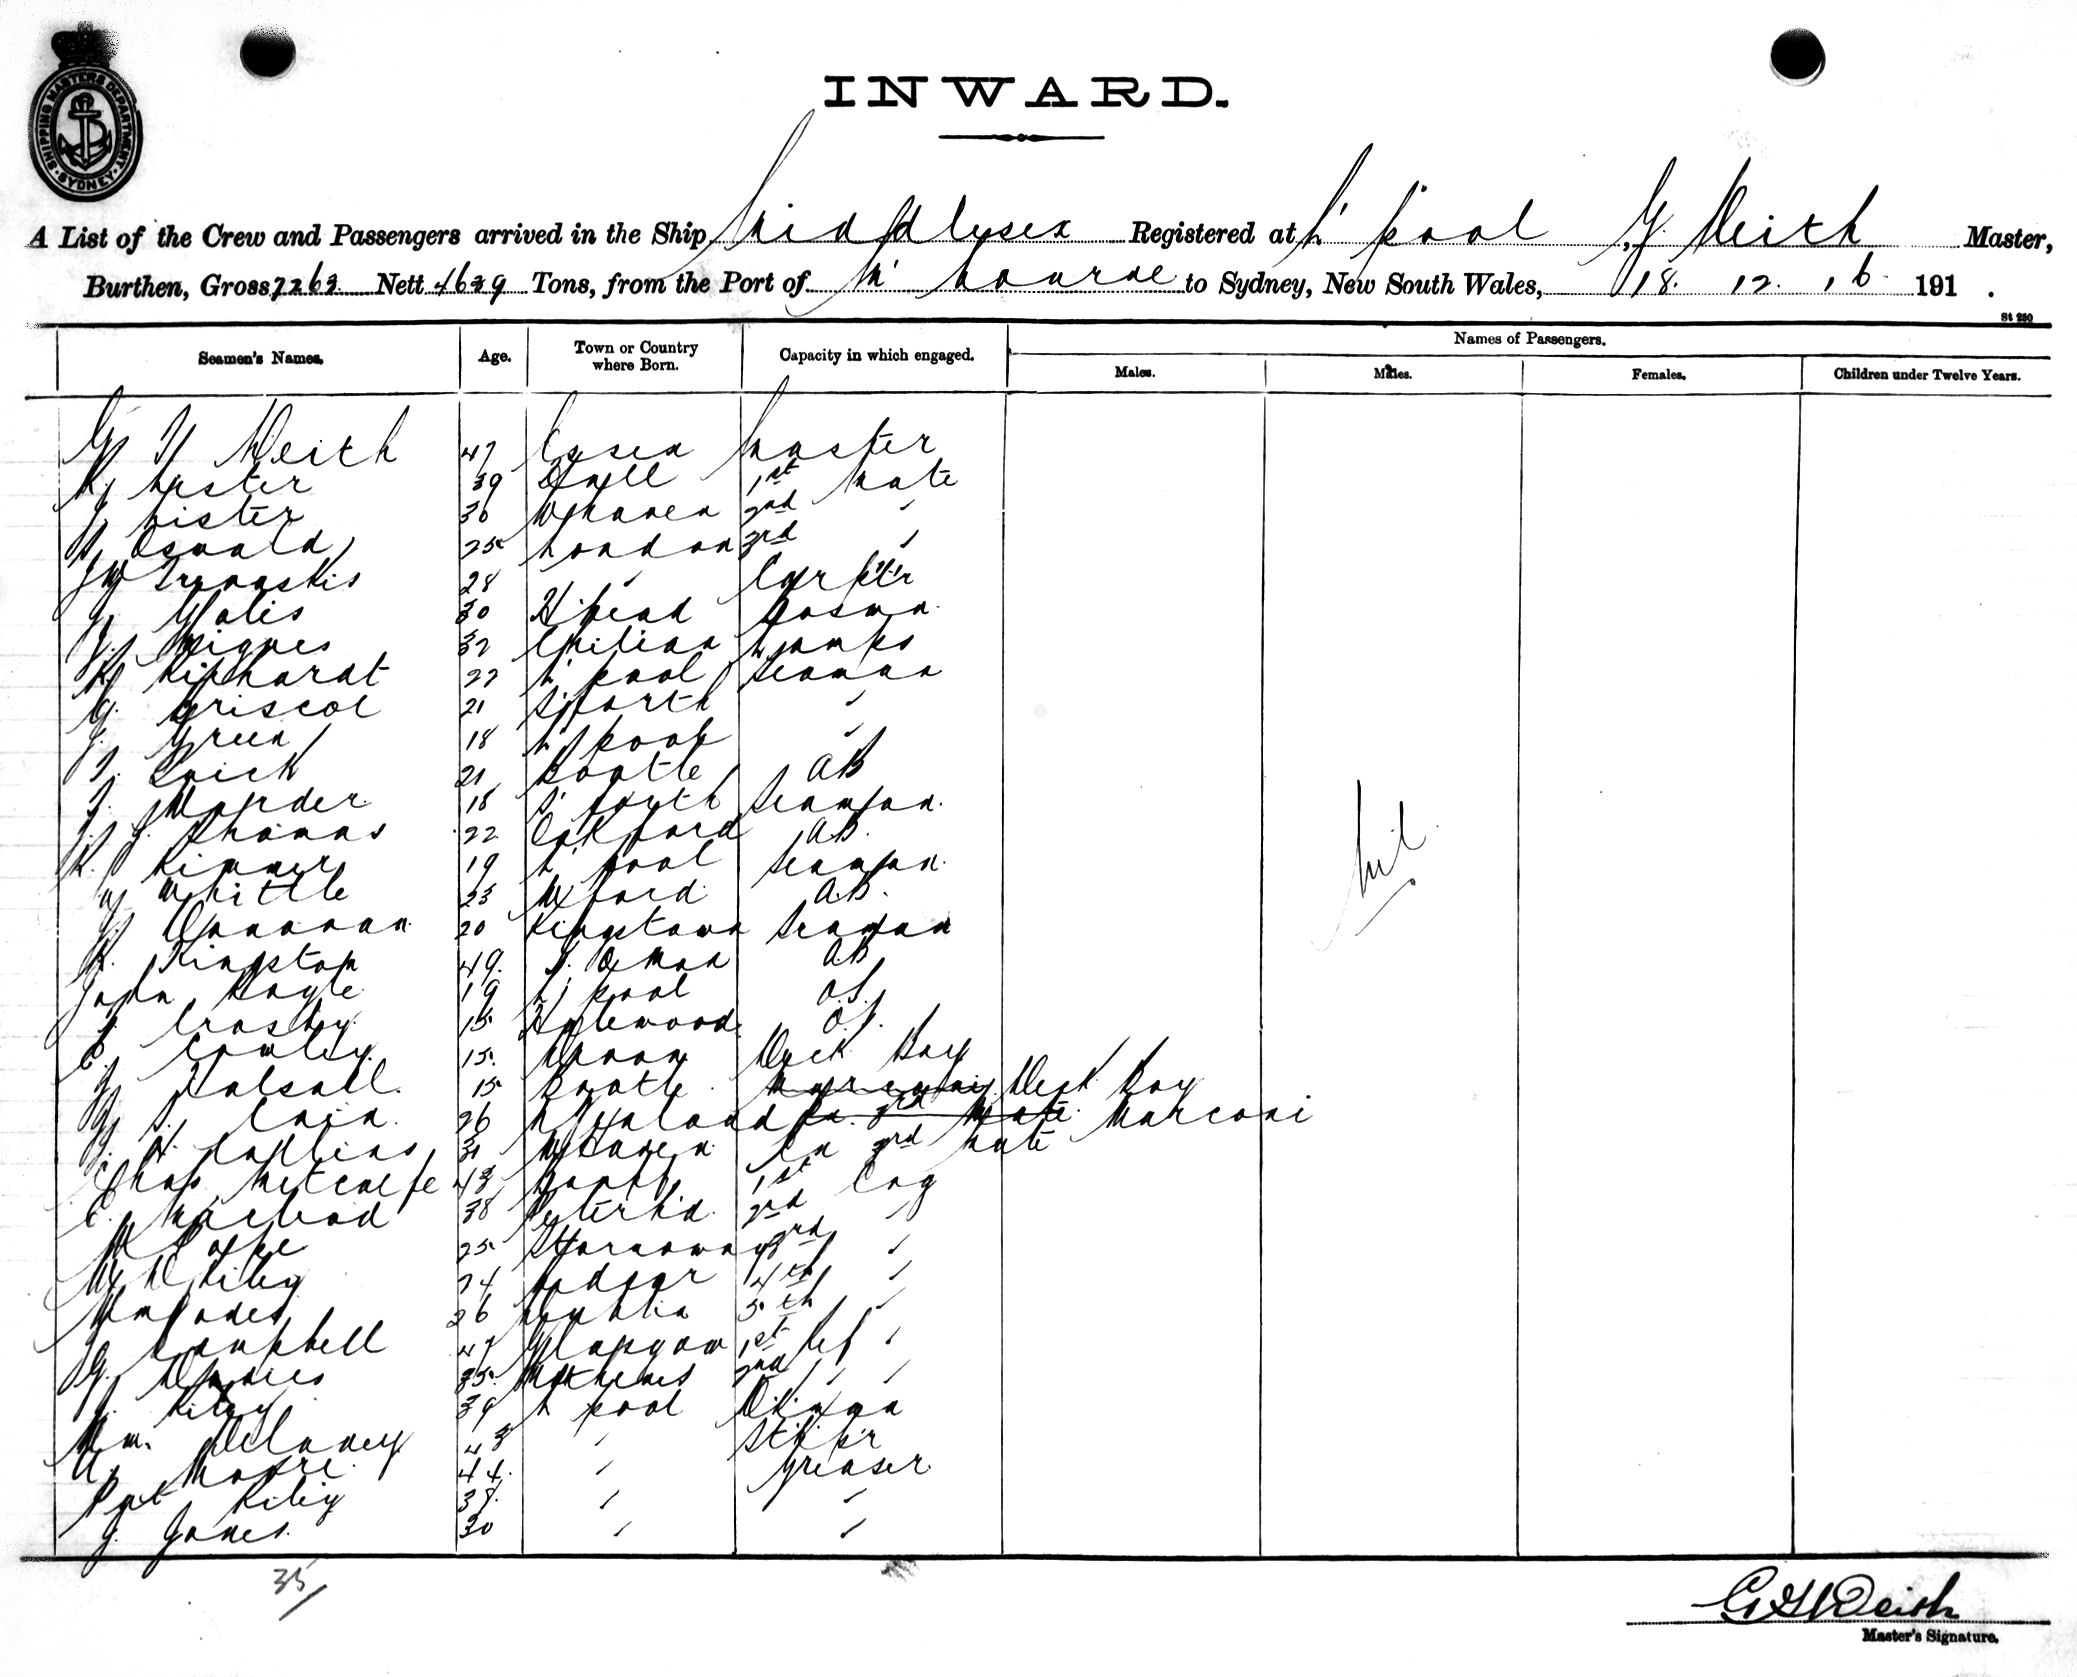 SHIPPING MASTERS DEPARTMENT
SYDNEY
INWARD.
A List of the Crew and Passengers arrived in the Ship Middlesex Registered at L'pool, G. Deith Master,
Burthen, Gross 7263 Nett 4639 Tons, from the Port of M'bourne to Sydney, New South Wales, 18. 12. 16 191 .
St 230
Seamen's Names. Age. Town or Country where Born. Capacity in which engaged. Names of Passengers.
Males. Males. Females. Children under Twelve Years.
G Y Deith 47 Essex Master
Lester 39 1st Mate
Lister 36 W'haven 2nd "
Oswald 25 London 3rd "
28 " Carp'tr
30 B'head Bosun
Migues 32 Chilian Lamps
22 L'pool Seaman
G. Briscoe 21 S'forth "
J. Green 18 L'pool "
21 Bootle AB
18 S'forth Seaman
J. J. Thomas 22 AB.
R. Rimmer 19 L'pool Seaman
W Whittle 23 W'ford A.B.
Donovan 20 Kingstown Seaman
R. Kingston 49. I. of Man AB
John Boyle 19 L'pool O.S.
Crosby 15 O.S.
Cowley 15. Deck Boy
Halsall 15 Bootle Deck Boy
Cain. 26 Ex 3rd Mate Marconi
Collins 31 W'haven Ex 3rd Mate
Chas Metcalfe 43 Bootle 1st Eng
C. Macleod 38 Peterh'd 2nd "
25 Stornoway 3rd "
W D Riley 24 4th "
Wm Jones 26 Dublin 5th "
J Campbell 47 Glasgow 1st Ref "
G. Davies 35. 2nd " "
J. Riley 39 L'pool D'k'yman
Wm. Delaney 43 " St'k'pr
Moore 44. " Greaser
Pat Riley 38. " "
G. Jones 30 " "
nil
35/
G Y Deith
Master's Signature.